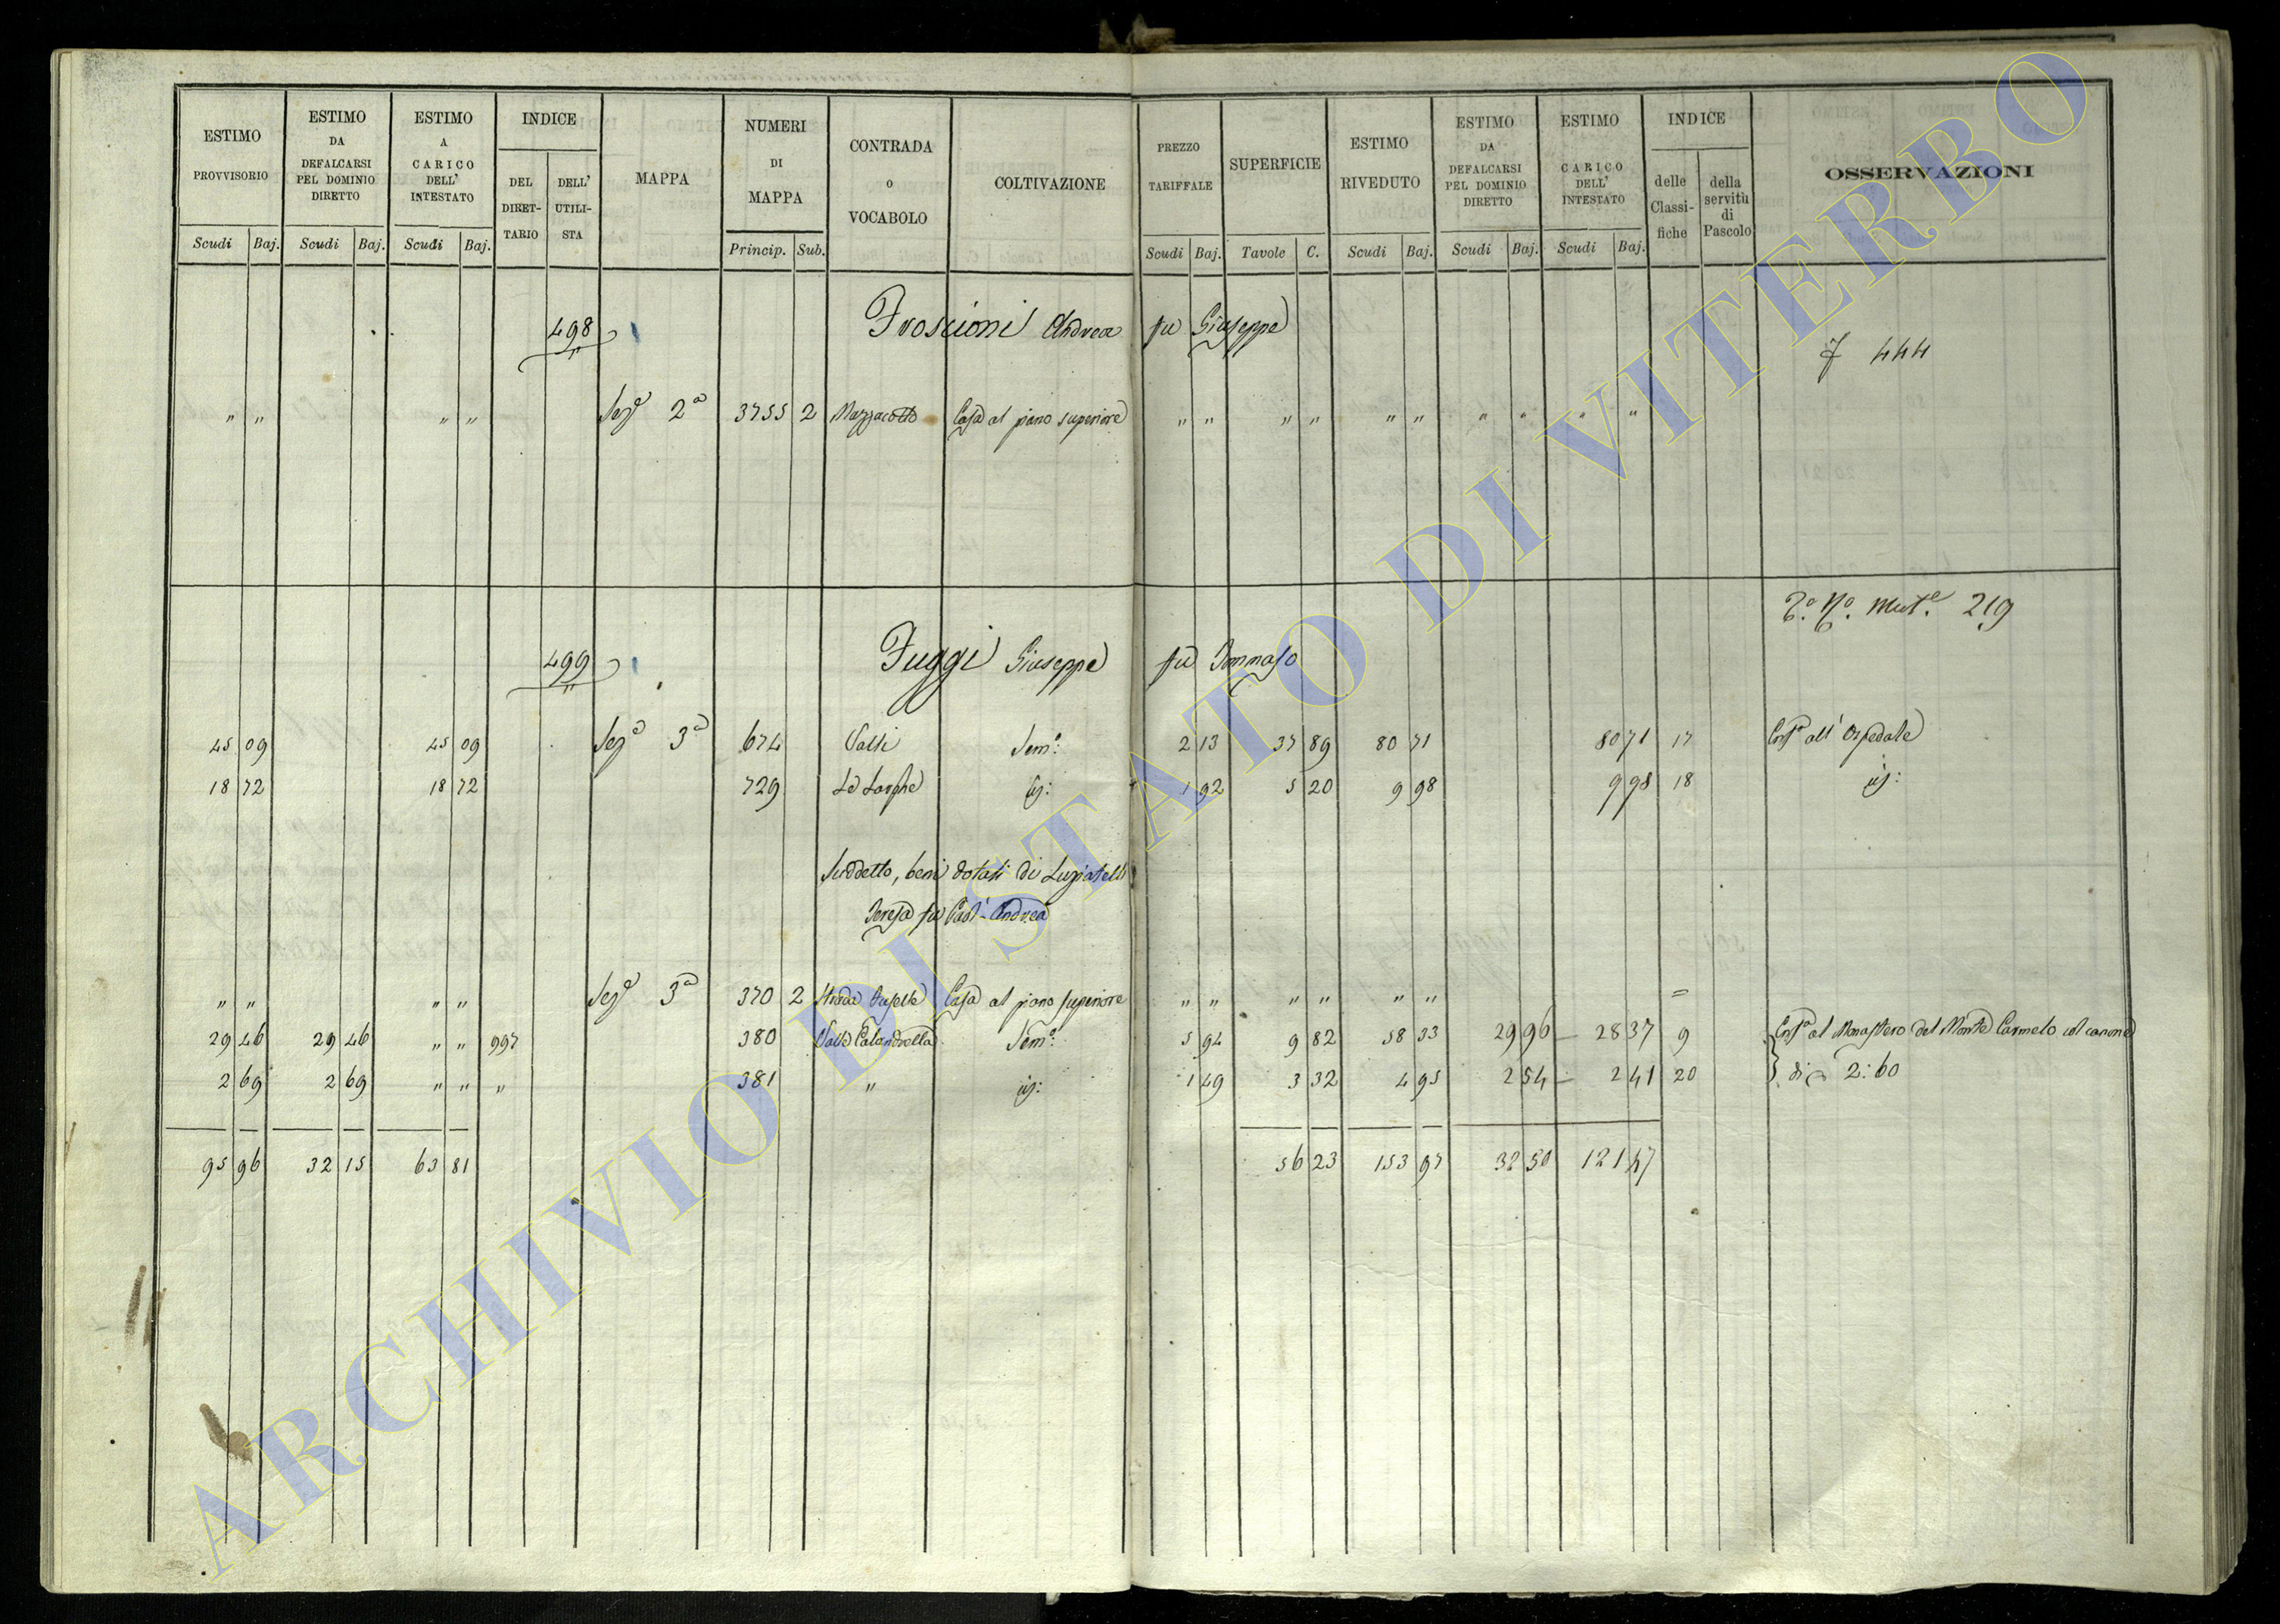 ESTIMO PROVVISORIO Scudi Baj.
ESTIMO DA DEFALCARSI PEL DOMINIO DIRETTO Scudi Baj.
ESTIMO A CARICO DELL' INTESTATO Scudi Baj.
INDICE DEL DIRET-TARIO DELL' UTILI-STA
MAPPA
NUMERI DI MAPPA Princip. Sub.
CONTRADA O VOCABOLO
COLTIVAZIONE
PREZZO TARIFFALE Scudi Baj.
SUPERFICIE Tavole C.
ESTIMO RIVEDUTO Scudi Baj.
ESTIMO DA DEFALCARSI PEL DOMINIO DIRETTO Scudi Baj.
ESTIMO CARICO DELL' INTESTATO Scudi Baj.
INDICE delle Classi-fiche della servitù di Pascolo
OSSERVAZIONI
498 Froscioni Andrea fu Giuseppe
444
" " " " Seze 2a 3755 2 Mazzacotto Casa al piano superiore " " " " " " " " " "
Mute. 219
499 Fuggi Giuseppe fu Tommaso
45 09 45 09 Seze 3a 674 Valli Semo: 2 13 37 89 80 71 80 71 17 Enfa all' Ospedale
18 72 18 72 729 Le Larghe ig: 1 92 5 20 9 98 9 98 18 ig:
Suddetto, beni dotali di Luziatelli
Teresa fu Paol-Andrea
" " " " Seze 3a 370 2 Strada Casa al piano superiore " " " " " " =
29 46 29 46 " " 997 380 Valle Calandrella Semo: 5 94 9 82 58 33 29 96 – 28 37 9 Enfa al Monastero del Monte Carmelo col canone
2 69 2 69 " " " 381 " ig: 1 49 3 32 4 95 2 54 – 2 41 20 di 2:60
95 96 32 15 63 81 56 23 153 97 32 50 121 47
ARCHIVIO DI STATO DI VITERBO